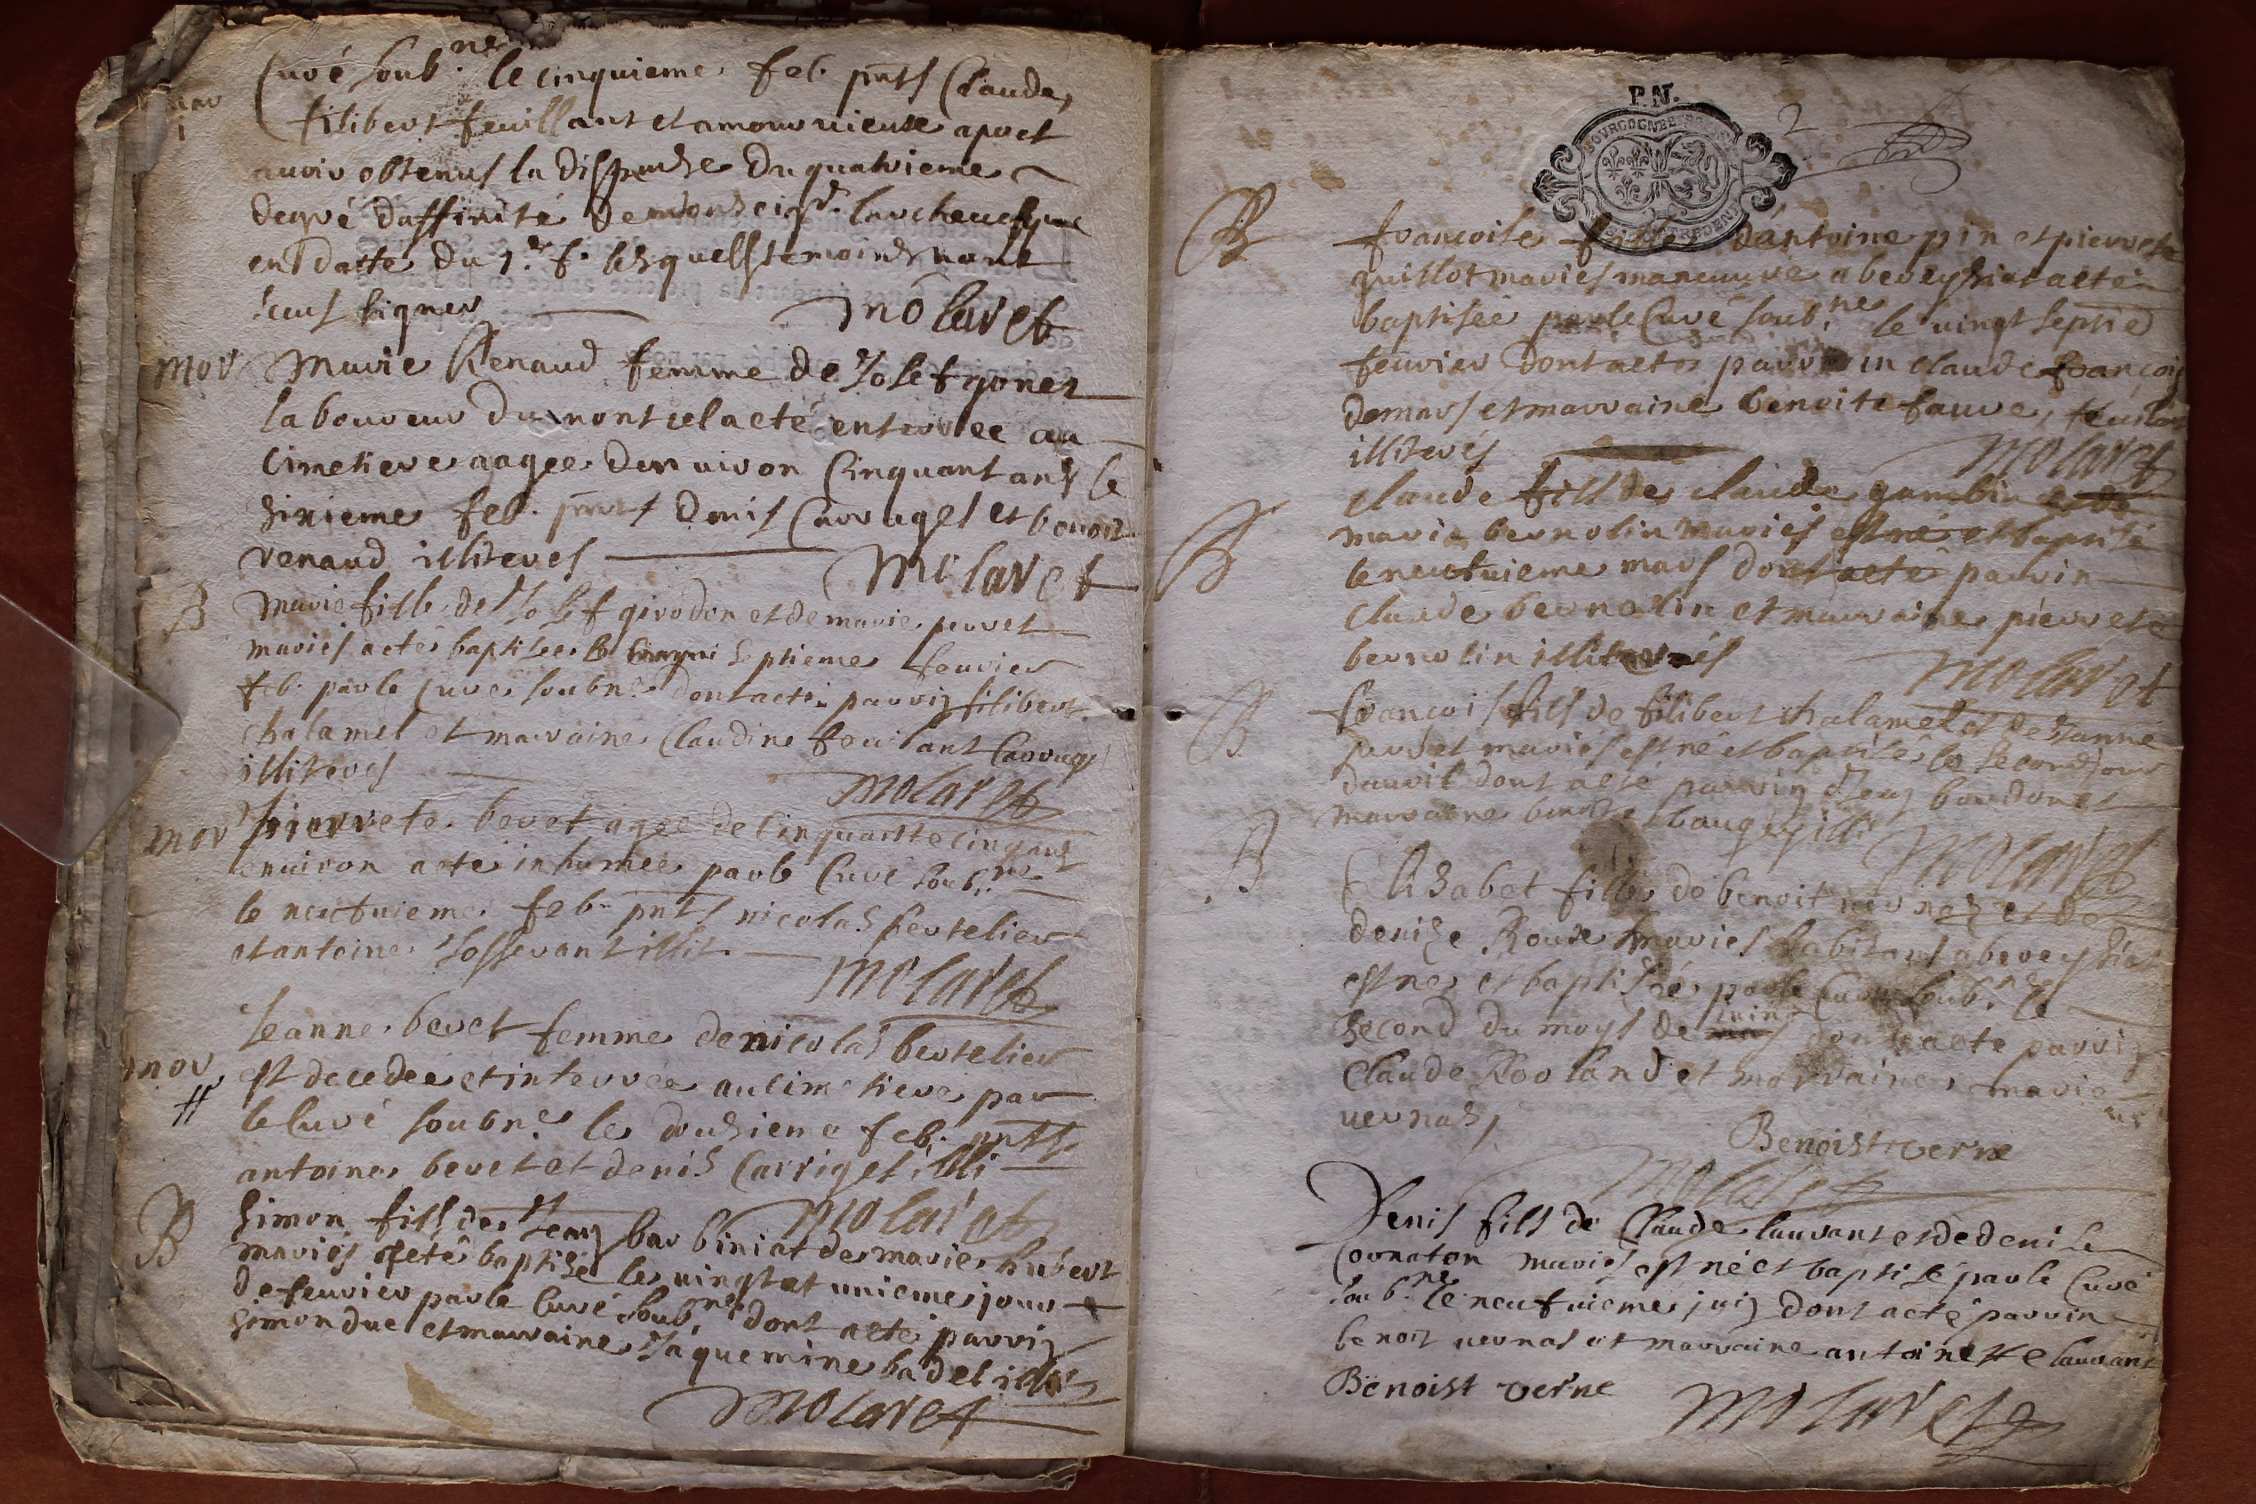 Curé soub.ne le cinquieme feb. pnts Claude
filibert feuillant et amour vieuse apret
avoir obtenus la dispense du quatrieme
degré daffinité de monseigr. larchevesque
en datte du 1.er f. lesquells temoins nont
sceus signer
molaret
mor
Marie Renaud femme de Josef gonet
laboureur du montcel a eté enterrée au
Cimetiere aagee denviron Cinquant ans le
sixieme feb. pnts denis Carruges et benoit
renaud illiteres
molaret
B
marie fille de Josef girodon et de marie perret
mariés a eté baptisee le septieme feuvier
feb. par le Curé soubne dont acte parrin filibert
Chalamel et marraine Claudine feuilant Carruge
illiteres
molaret
mor
Pierrete beret agee de Cinquante cinq ans
environ a eté inhumée par le Curé soub.ne
le neufvieme feb. pnts nicolas bertelier
et antoine Josserant illit.
molaret
mor
Jeanne beret femme de nicolas bertelier
est decedée et interrée au cimetiere par
le Curé soubne. le dousieme feb. pnts
antoine beret et denis Carriges illi
molaret
B
Simon fills de Jean barbin et de marie hubert
mariés a eté baptisé le vingt et unieme jour
de feuvier par le Curé soub.ne dont acte parrin
simon duc et marraine Jaquemine badel illi
molaret
P.N.
2
B
francoise fille d'antoine pin et pierrete
guillot mariés a bereyssiat a eté
baptisée par le Curé soub.ne le vingt septie
feuvier dont acte parrin claude françois
demars et marraine benoite faure,
illiteres
molaret
B
claude fills de claude gambin et de
marie bernolin mariés est né et baptisé
le neufvieme mars dont acte parrin
claude bernolin et marraine pierrete
bernolin illiterés
molaret
B
françois fills de filibert chalamel et de Janne
perret mariés est né et baptisé le second jour
davril dont acte parrin Jean bourdonet
marraine benoite baugey illi
molaret
B
Elisabet fille de benoit vernes et de
denise Roux mariés habitans a bereyssiat
est nee et baptisée par le Curé soub.ne le
second du moys de juin dont acte parrin
Claude Rooland et marraine marie
vernas
Benoist verne
molaret
Denis fills de Claude laurant et de denise
Cornaton mariés est né et baptisé par le Curé
soub.ne le neufvieme juin dont acte parrin
benoit vernas et marraine antoinette laurant
Benoist verne
molaret